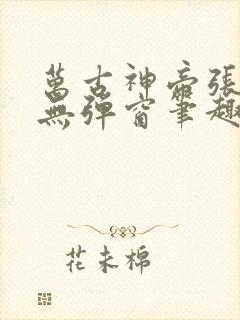 萬古神帝張
無彈窗筆趣
花未棉